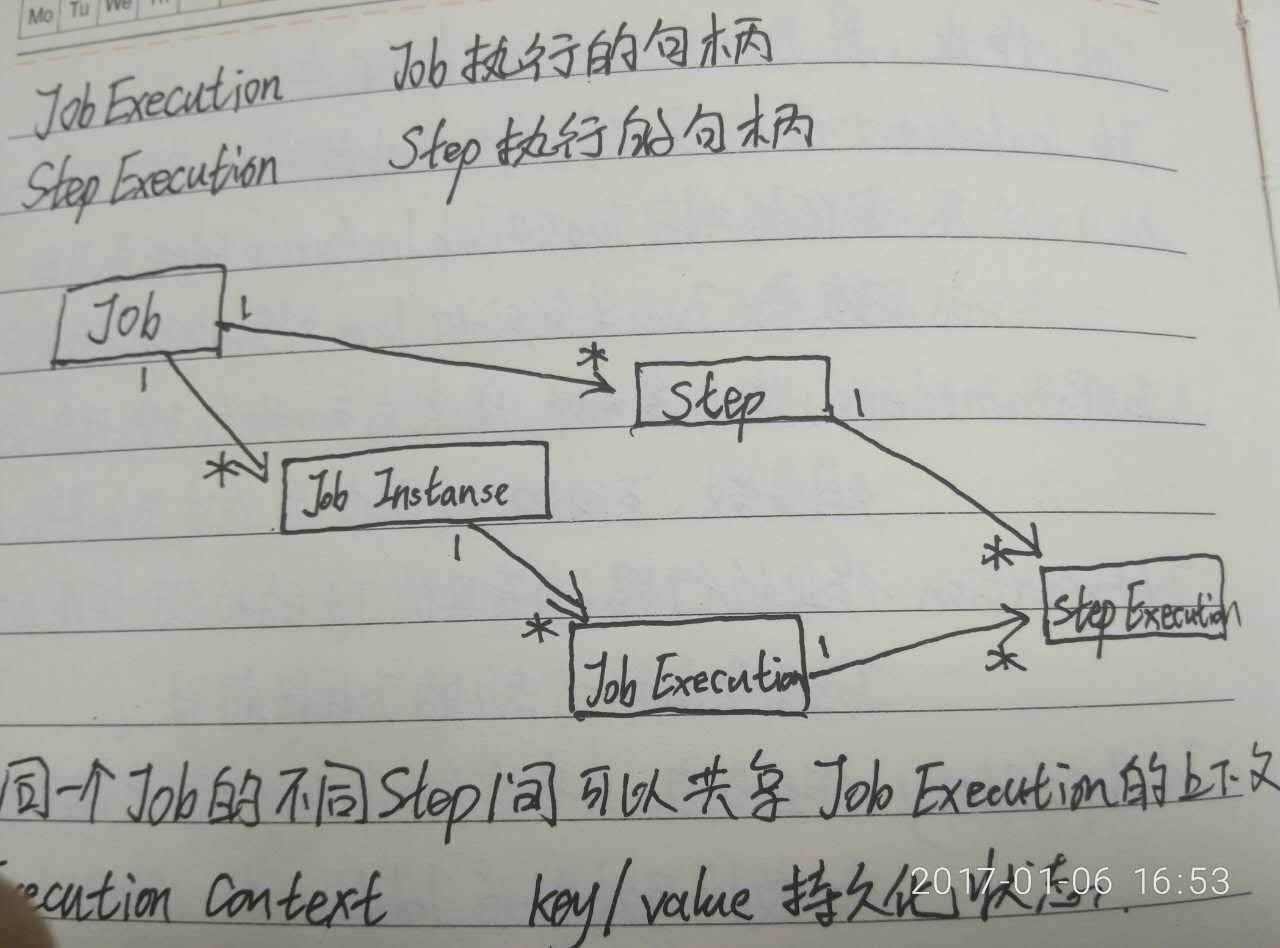 Mo Tu We
Job Execution Job 执行的句柄
Step Execution Step 执行的句柄
Job 1
1 * Step 1
* Job Instanse
1 * Step Execution
* Job Execution 1 *
同一个Job的不同Step间可以共享 Job Execution的上下文
ecution Context key/value 持久化状态.
2017-01-06 16:53